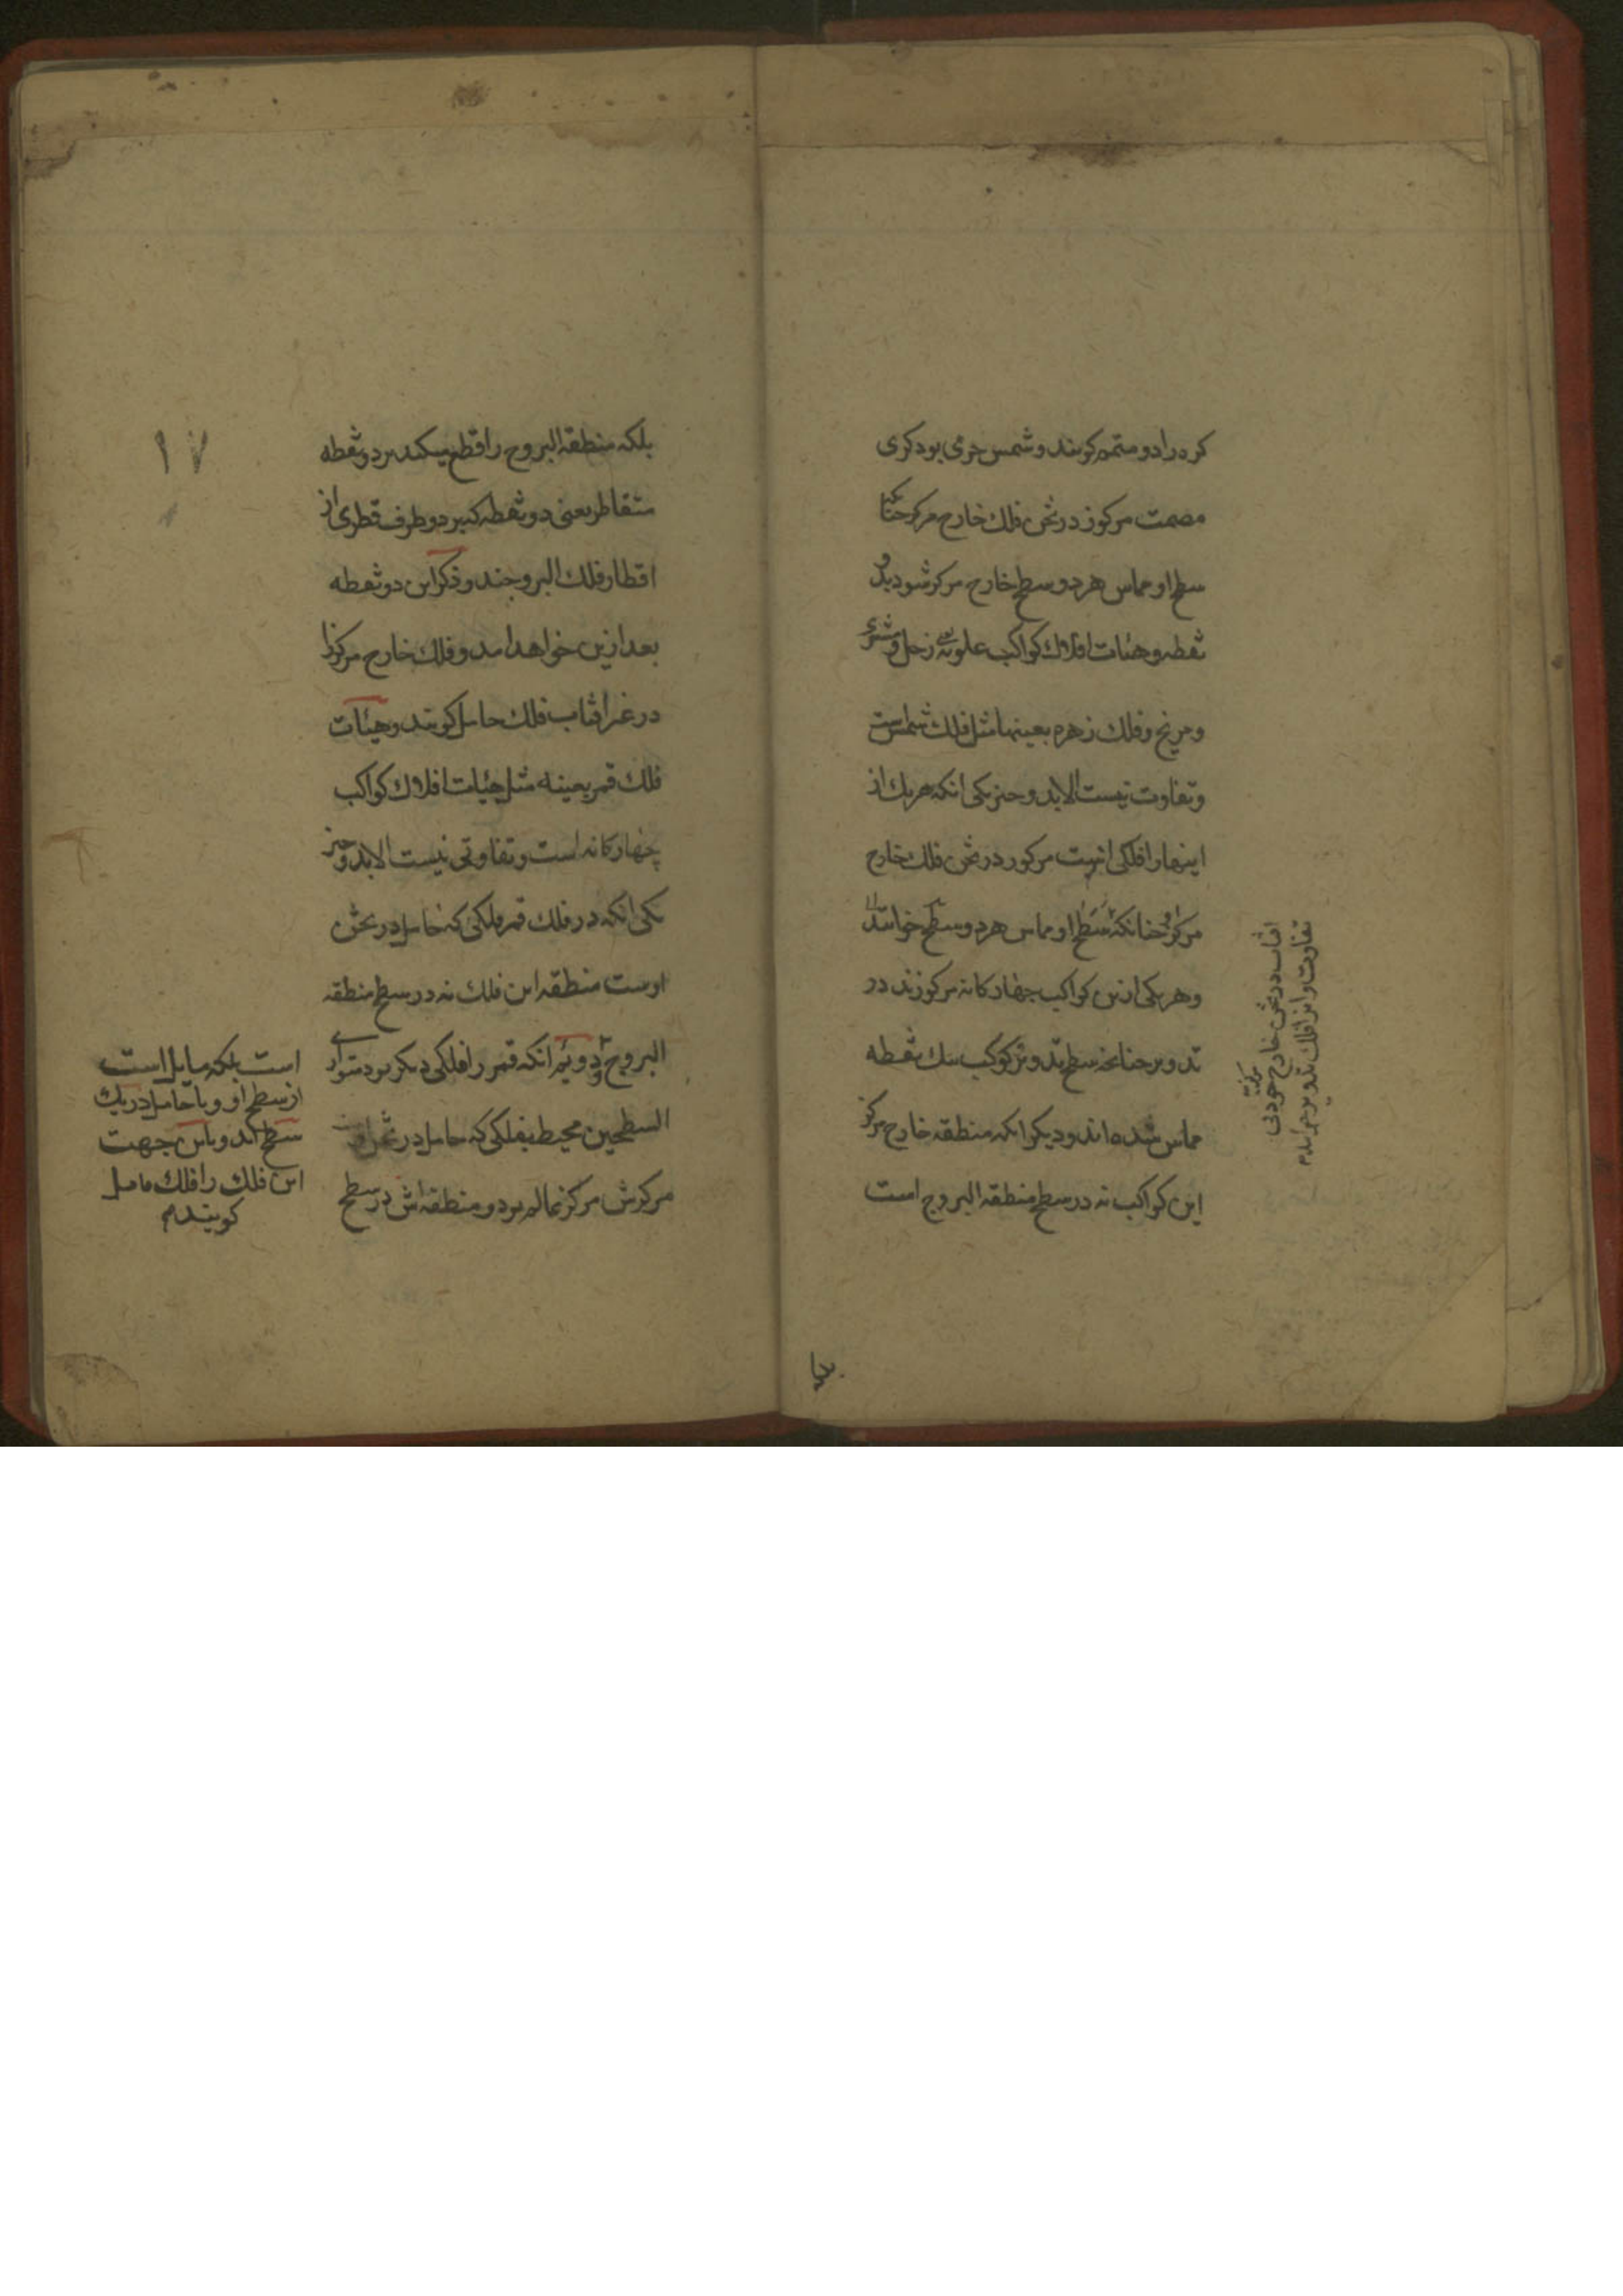 کره را دو متمم کویند و شمس جرمی بود کری
مصمت مرکوز در ثخن فلك خارج مرکز چنانکه
سطح او مماس هر دو سطح خارج مرکز شود بدو
نقطه و هیئات افلاك کواکب علویه زحل و مشتری
و مریخ و فلك زهره بعینها مثل فلك شمس است
و تفاوت نیست الا بدو چیز یکی انکه هر یك از
اینها را فلکی است مرکوز در ثخن فلك خارج
مرکز چنانکه سطح او مماس هر دو سطح
و هر یکی ازین کواکب چهارکانه مرکوزند در
تدویر چنانچه سطح تدویر کوکب بیك نقطه
مماس شده اند و دیکر انکه منطقه خارج مرکز
این کواکب نه در سطح منطقه البروج است
افتاب در ثخن خارج مرکز خود بی
تفاوت و این افلاك تدویر
بلکه منطقة البروج را قطع میکند بر دو نقطه
متقاطر یعنی دو نقطه که بر دو طرف قطری از
اقطار فلك البروجند و ذکر این دو نقطه
بعد ازین خواهد امد و فلك خارج مرکز را
در غیر افتاب فلك حامل کویند و هیئات
فلك قمر بعینه مثل هیئات افلاك کواکب
چهارکانه است و تفاوتی نیست الا بدو چیز
یکی انکه در فلك قمر فلکی که حامل در ثخن
اوست منطقه این فلك نه در سطح منطقه
البروج دویم انکه قمر را فلکی دیکر بود متوازی
السطحین محیط بفلکی که حامل در ثخن اوست
مرکزش مرکز عالم بود و منطقه اش در سطح
است بلکه مایل است
از سطح او و با حامل در یك
سطح اند و باین جهت
این فلك را فلك مایل
کویند
۱۷